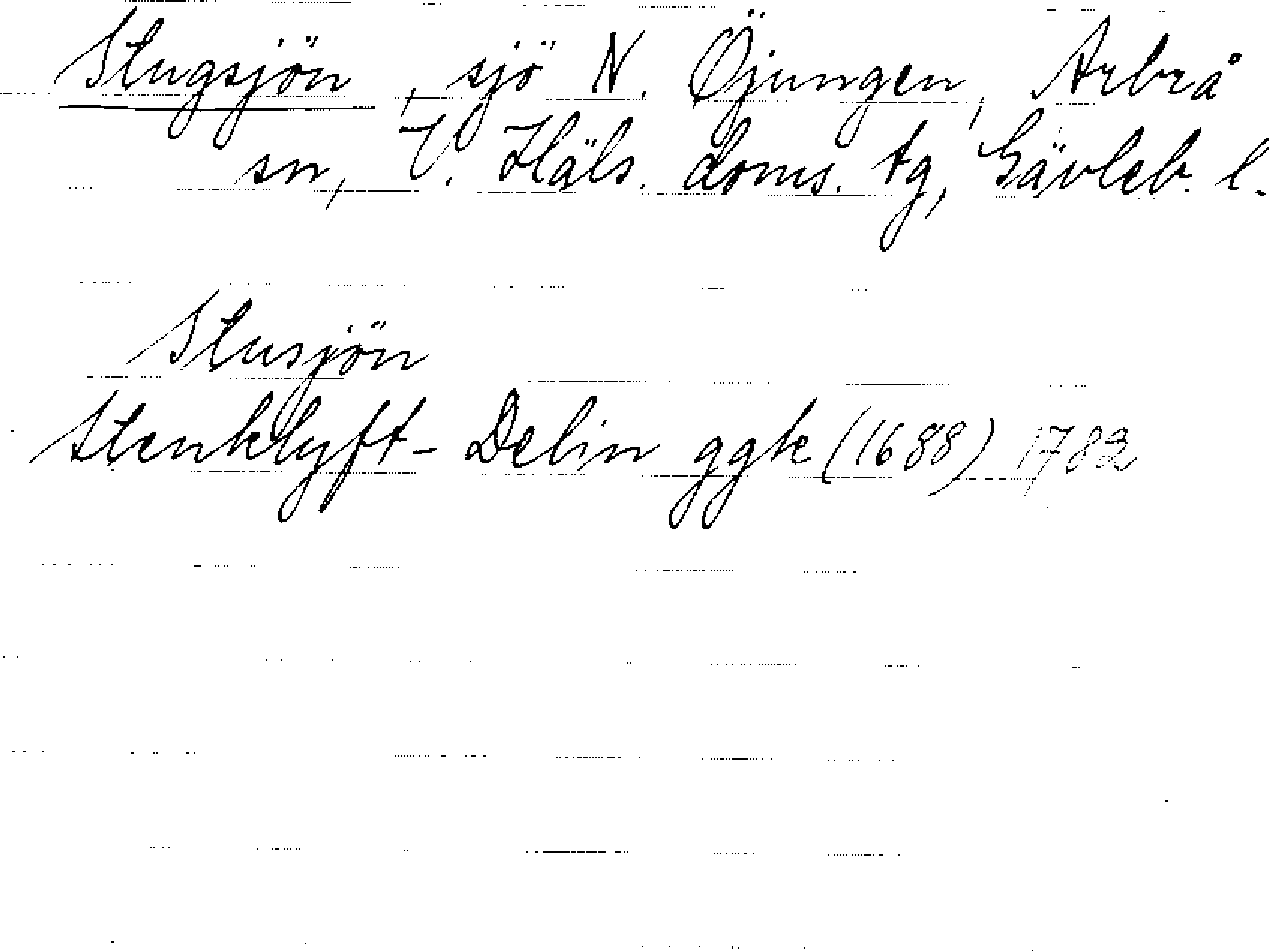 Stugsjön, sjö N. Öjungen, Arbrå
sn, V. Häls. doms. tg, Gävleb. l.
Stusjön
Stenklyft- Delin ggk (1688) 1782